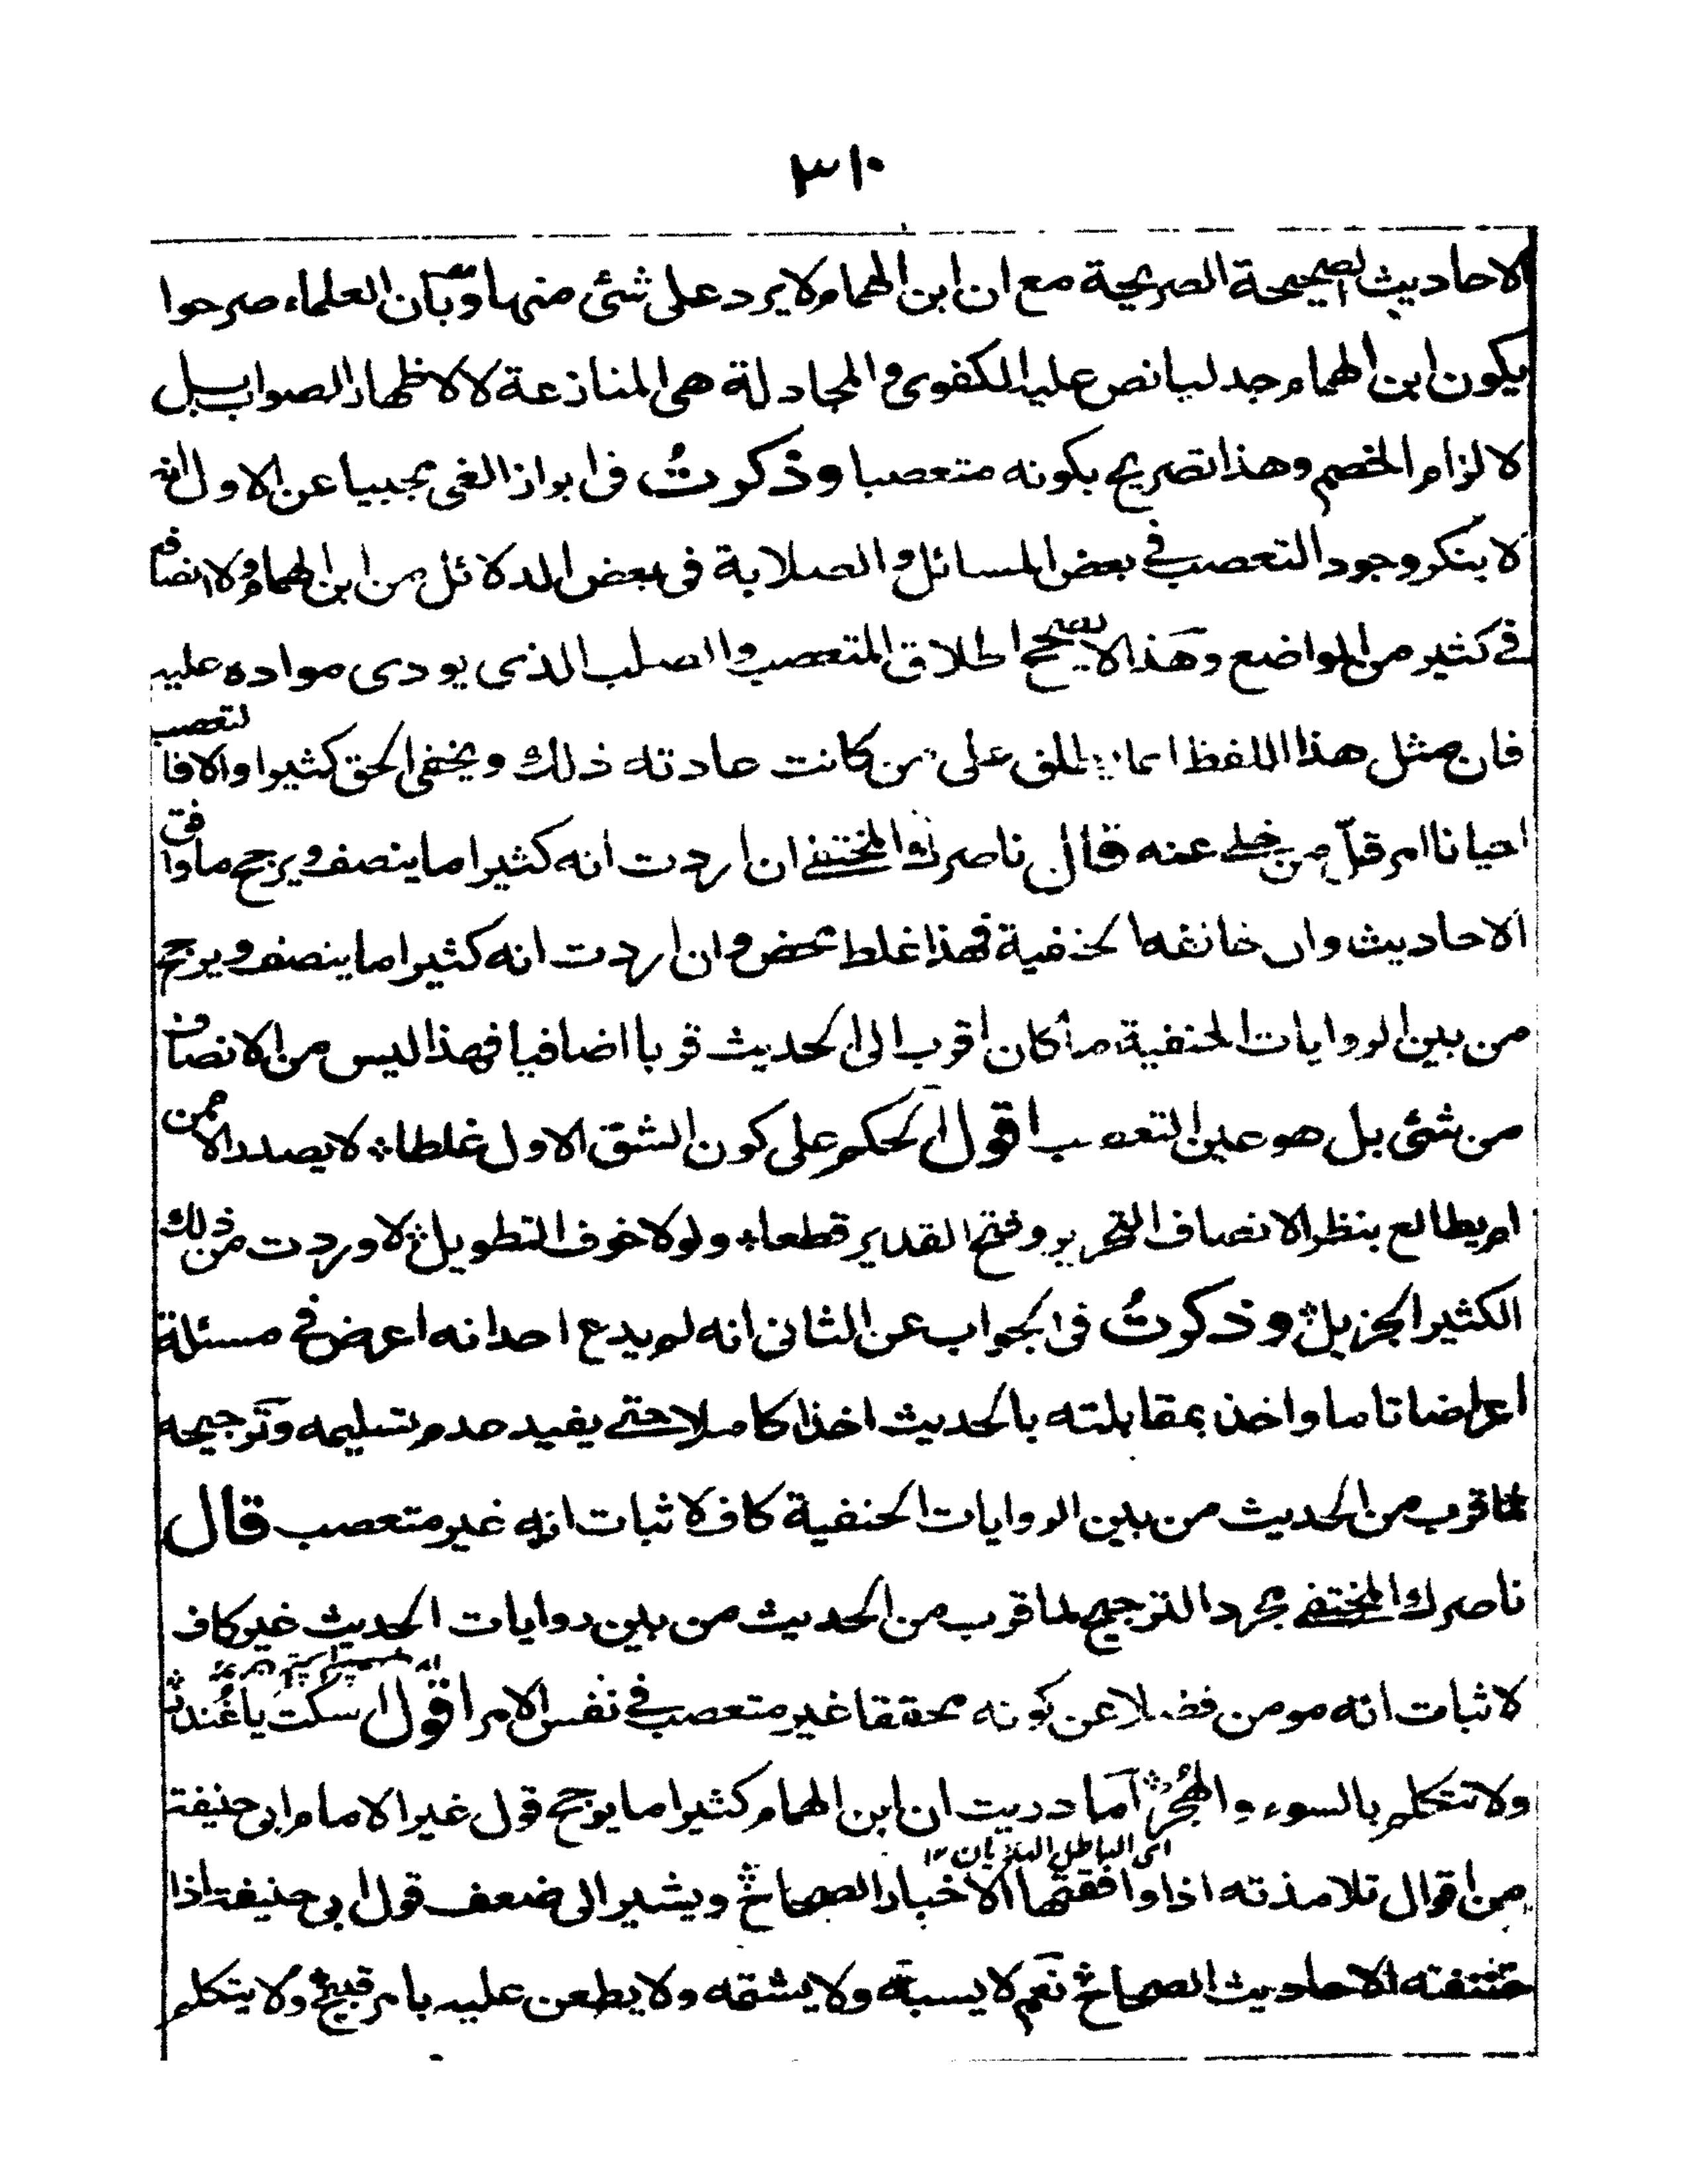 ٣١٠
الاحاديث الصحيحة الصريحة مع ان ابن الهمام لا يرد على شئ منها وبان العلماء صرحوا
بكون ابن الهمام جدليا نص عليه الكفوى والمجادلة هى المنازعة لا لاظهار الصواب بل
لالزام الخصم وهذا تصريح بكونه متعصبا وذكرتُ فى ابراز الغى مجيبا عن الاول انه
لا ينكر وجود التعصب فى بعض المسائل والصلابة فى بعض الدلائل من ابن الهمام ولا انصافه
فى كثير من المواضع وهذا لا يصحح اطلاق المتعصب والصلب الذى يودى مواده عليه
فان مثل هذا اللفظ انما يطلق على من كانت عادته ذلك ويخفى الحق كثيرا والا فالتعصب
احيانا امر قلّ من خلى عنه قال ناصرك المختفى ان اردت انه كثيرا ما ينصف ويرجح ما وافق
الاحاديث وان خالفه الحنفية فهذا غلط محض وان اردت انه كثيرا ما ينصف ويرجح
من بين الروايات الحنفية ما كان اقرب الى الحديث قربا اضافيا فهذا ليس من الانصاف
من شئ بل هو عين التعصب اقول الحكم على كون الشق الاول غلطا لا يصدر الا ممن
لم يطالع بنظر الانصاف التحرير وفتح القدير قطعا ولولا خوف التطويل لاوردت من ذلك
الكثير الجزيل وذكرتُ فى الجواب عن الثانى انه لم يدع احد انه اعرض فى مسئلة
اعراضا تاما واخذ بمقابلته بالحديث اخذا كاملا حتى يفيد عدم تسليمه وترجيحه
لما قرب من الحديث من بين الروايات الحنفية كاف لاثبات انه غير متعصب قال
ناصرك المختفى مجرد الترجيح لما قرب من الحديث من بين روايات الحديث غير كاف
لاثبات انه مومن فضلا عن كونه محققا غير متعصب فى نفس الامر اقول اسكت يا غُندر
ولا تتكلم بالسوء والهُجر اما دريت ان ابن الهمام كثيرا ما يرجح قول غير الامام ابى حنيفة
اى الباطل الهذيان ١٢
من اقوال تلامذته اذا وافقتها الاخبار الصحاح ويشير الى ضعف قول ابى حنيفة اذا
خالفته الاحاديث الصحاح نعم لا يسبه ولا يشتمه ولا يطعن عليه بامر قبيح ولا يتكلم